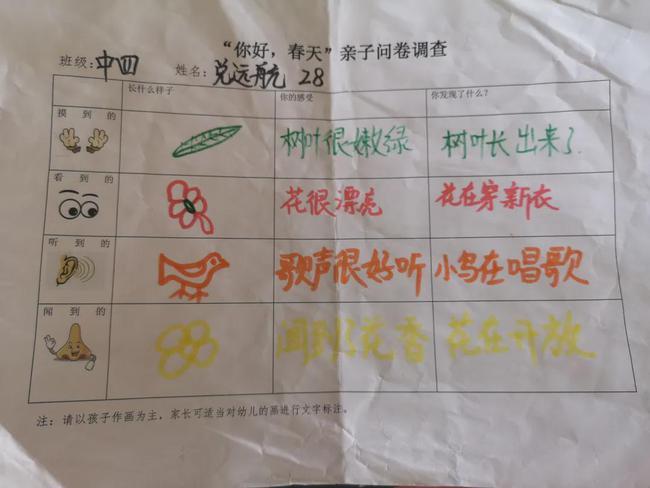 “你好，春天”亲子问卷调查
班级：中四 姓名：兑远航 28
长什么样子 你的感受 你发现了什么？
摸到的 树叶很嫩绿 树叶长出来了
看到的 花很漂亮 花在穿新衣
听到的 歌声很好听 小鸟在唱歌
闻到的 闻到了花香 花在开放
注：请以孩子作画为主，家长可适当对幼儿的画进行文字标注。